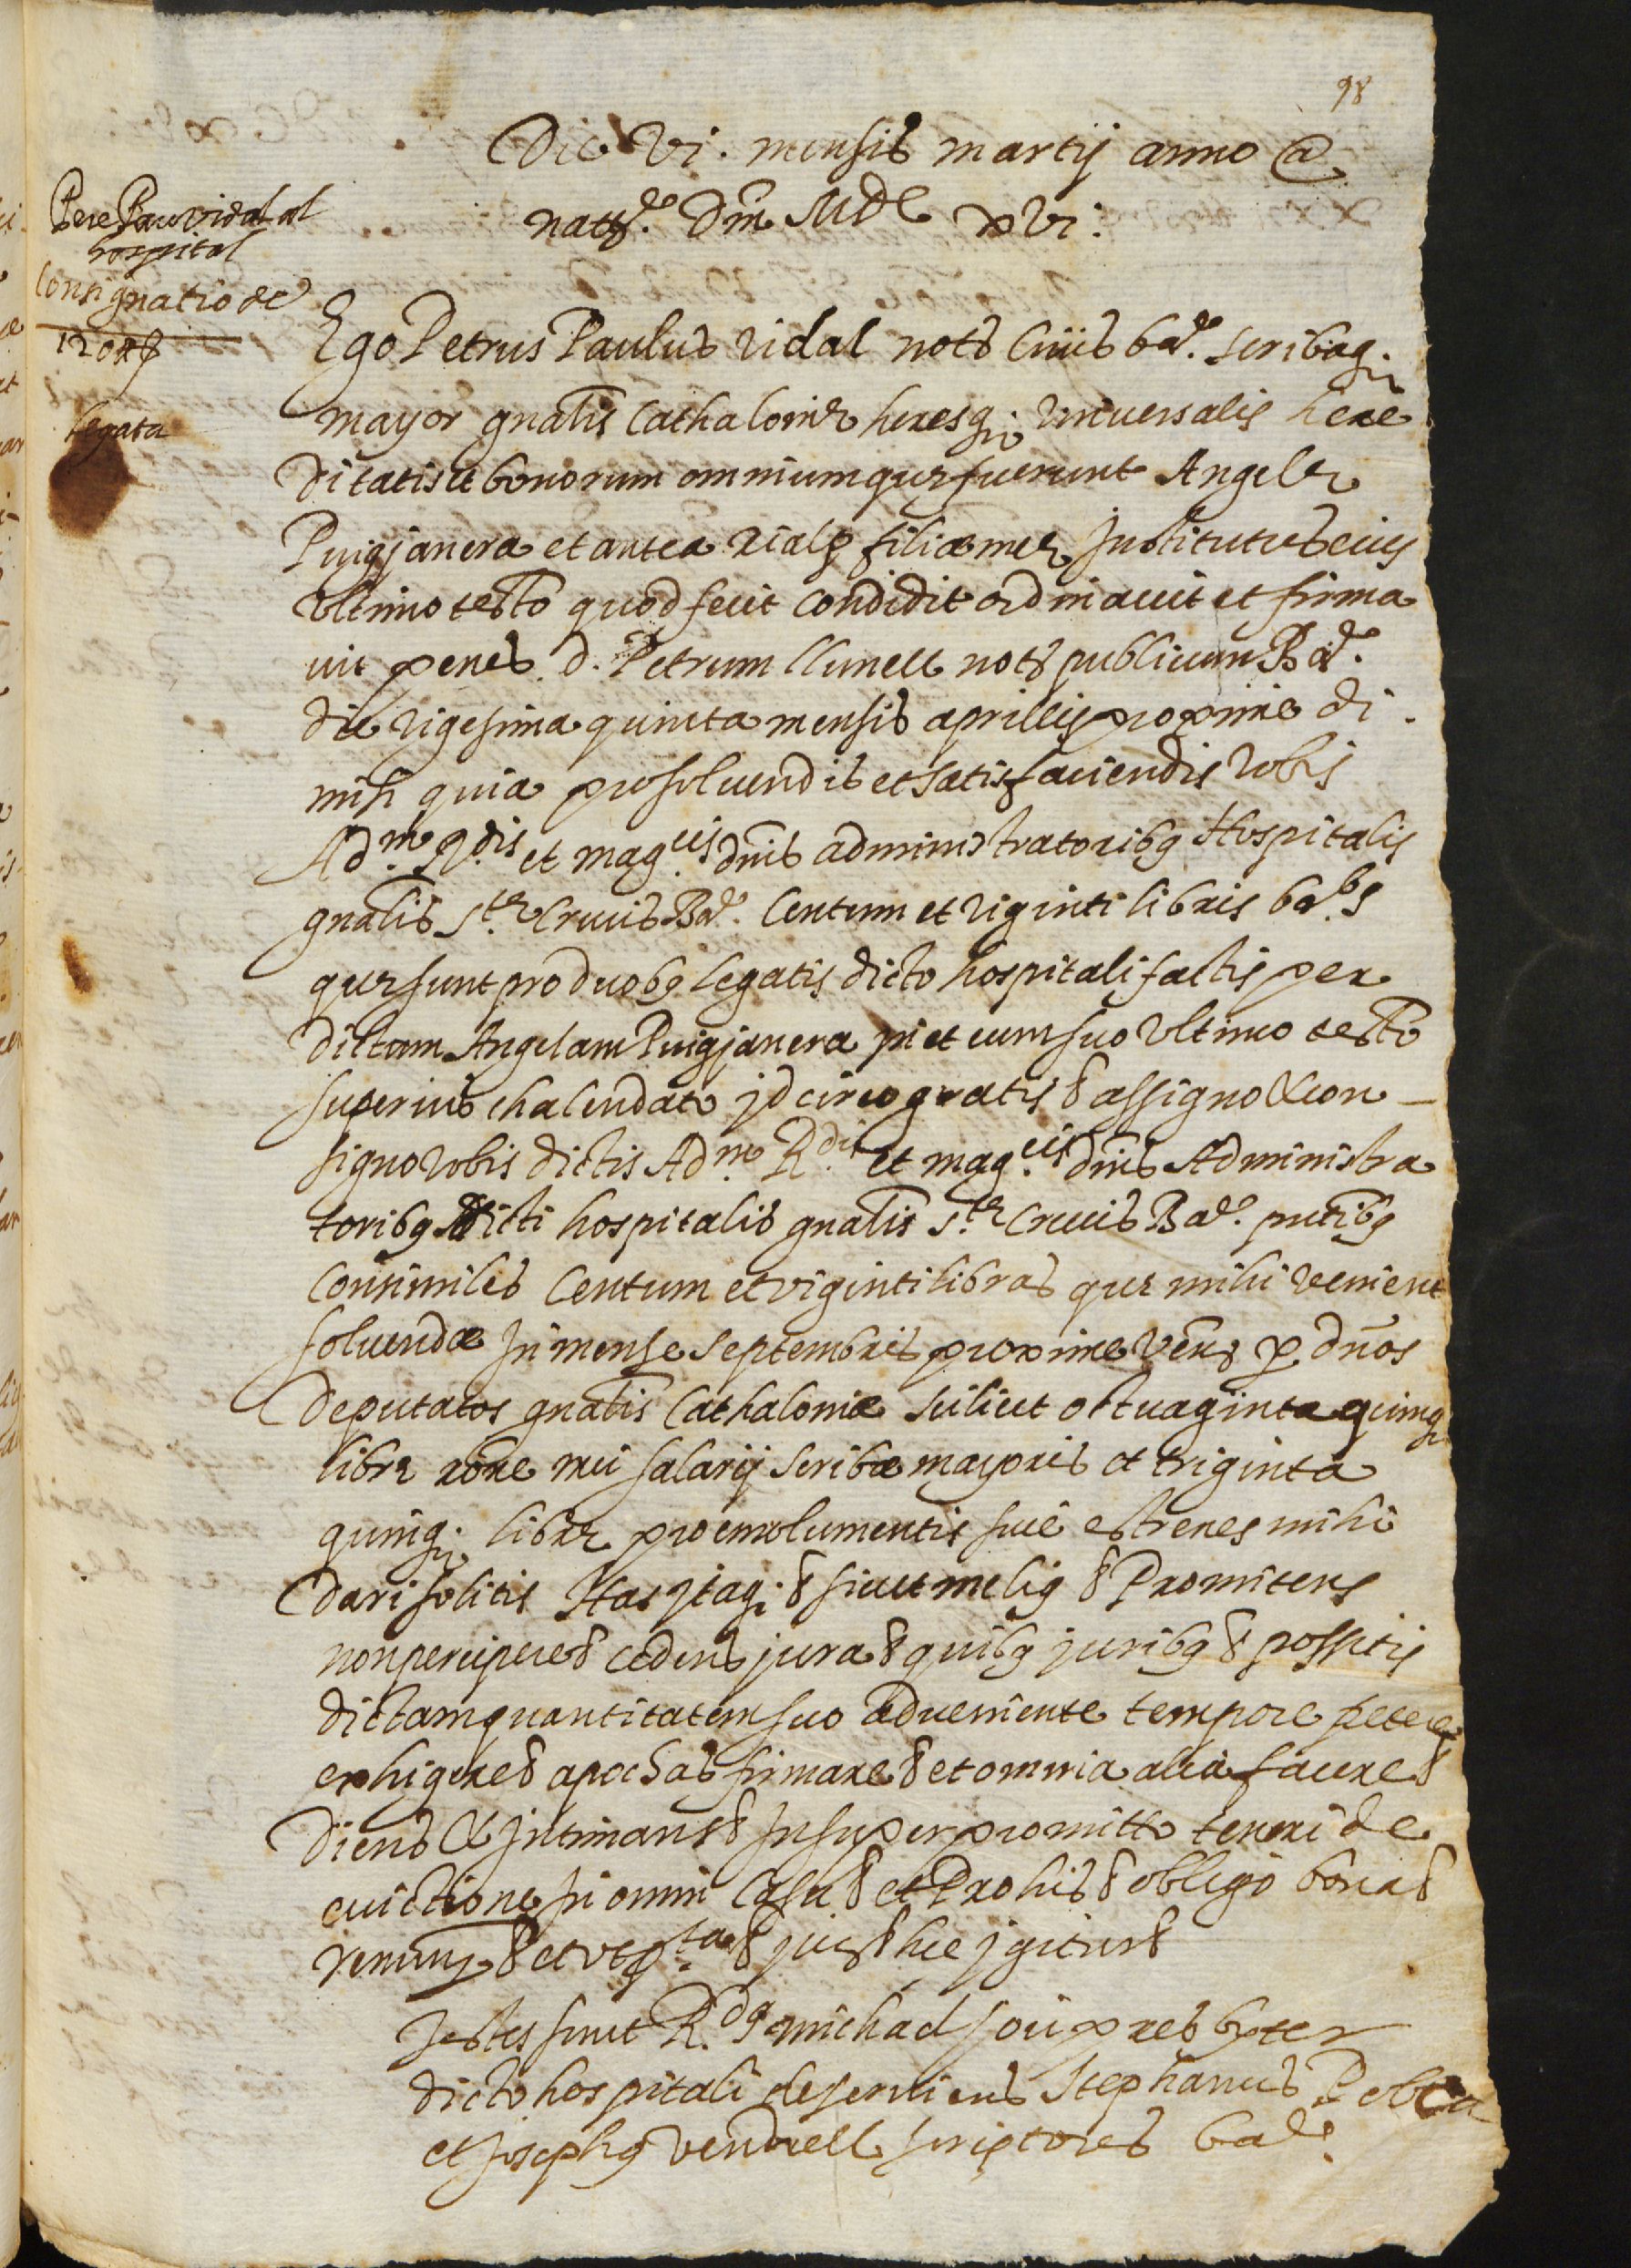 98
Die vi. mensis martij anno @
natte. Dni MDC xvi.
Pere Pau vidal al
hospital
Consignatio de
120 ℔
legata
Ego Petrus Paulus vidal nots Civis bar. scribaq.
mayor gnalis Cathaloniæ heresq. vniuersalis here
ditatis et bonorum omnium quæ fuerunt Angelæ
Puigjanera et antea rialp filiæ meæ Institutus eius
vltimo testo quod fecit condidit ordinauit et firma
uit penes d. Petrum llunell nots publicum Bar.
die vigesima quinta mensis aprillis proxime di
missi quia prosoluendis et satisfaciendis vobis
Adm. Rdis et magcis. dnis administratoribg Hospitalis
gnalis Stæ Crucis Bar. Centum et viginti libris bar.bs
quæ sunt pro duobg legatis dicto hospitali factis per
dictam Angelam Puigjanera in et cum suo vltimo testo
superius chalendato idcirco gratis & assigno & con
signo vobis dictis Adm. Rdis et magcis. dnis Administra
toribg dicti hospitalis gnalis Stæ Crucis Bar. pntibg
Consimiles Centum et viginti libras quæ mihi venient
soluendæ In mense septembris proxime vens p dnos
deputatos gnalis Cathaloniæ scilicet octuaginta quinq
libræ rone mei salarij scribæ mayoris et triginta
quinq. libræ pro emolumentis siue estrenes mihi
dari solitis Has itaq. & sicut melig & Promitens
non percipere & cedens jura & quibg juribg & possitis
dictam quantitatem suo adueniente tempore petere
exhigere & apochas firmare & et omnia alia facere &
diens & Intimans & Insuper promitto teneri de
euictione in omni casu & et Pro his & obligo bona &
renuns & et vt pta & jur & hec igitur &
Testes sunt R.dg michael presbyter
dicto hospitali deseruiens Stephanus
et Josephg vendrell scriptores bar.